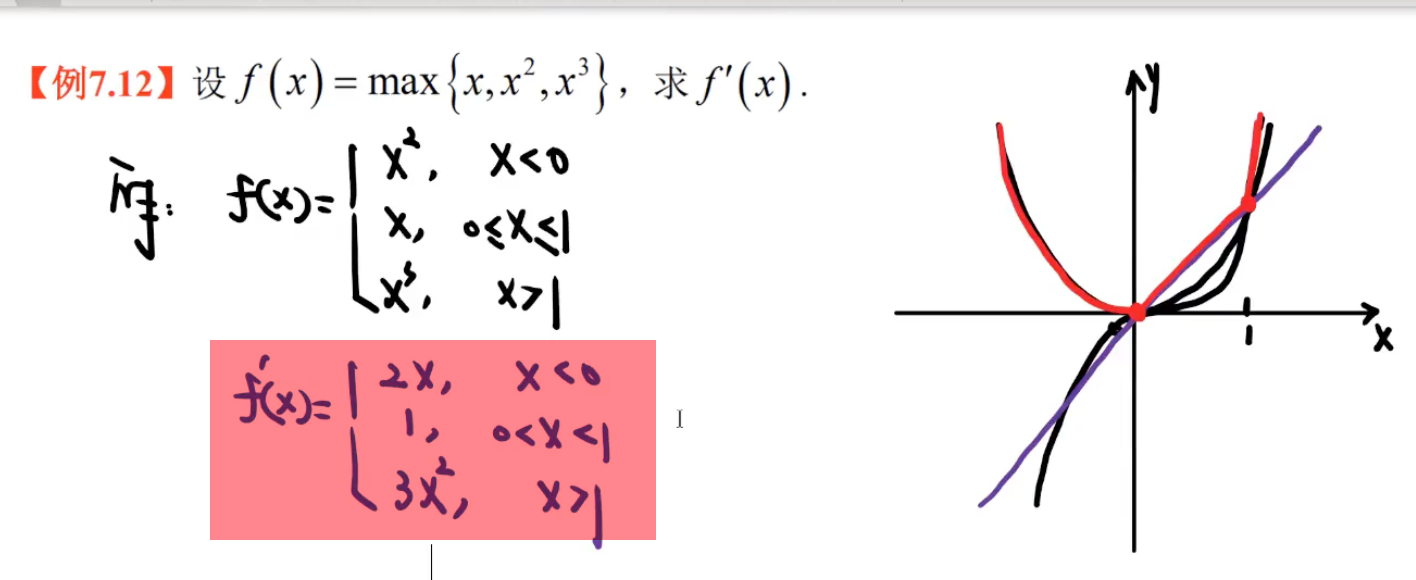 【例7.12】设 f(x) = max{x, x², x³}，求 f′(x).
解: f(x)= { x², x<0
x, 0≤x≤1
x³, x>1
f′(x)= { 2x, x<0
1, 0<x<1
3x², x>1
y
x
1